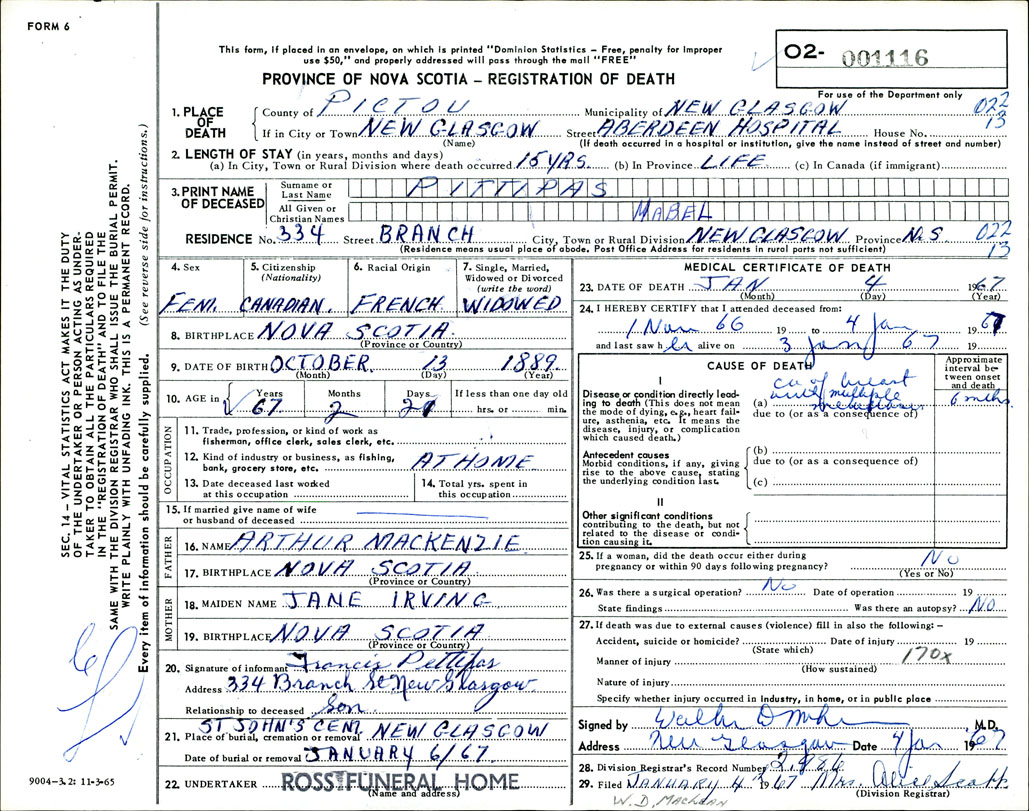 FORM 6
This form, if placed in an envelope, on which is printed "Dominion Statistics – Free, penalty for improper
use $50," and properly addressed will pass through the mail "FREE"
PROVINCE OF NOVA SCOTIA – REGISTRATION OF DEATH
02- 001116
For use of the Department only
1. PLACE OF DEATH County of PICTOU Municipality of NEW GLASGOW 022
If in City or Town NEW GLASGOW Street ABERDEEN HOSPITAL House No. 13
(Name) (If death occurred in a hospital or institution, give the name instead of street and number)
2. LENGTH OF STAY (in years, months and days)
(a) In City, Town or Rural Division where death occurred 15 YRS. (b) In Province LIFE (c) In Canada (if immigrant)
3. PRINT NAME OF DECEASED Surname or Last Name PITTIPAS
All Given or Christian Names MABEL
RESIDENCE No. 334 Street BRANCH City, Town or Rural Division NEW GLASGOW Province N.S 022
(Residence means usual place of abode. Post Office Address for residents in rural parts not sufficient) 13
4. Sex FEM.
5. Citizenship (Nationality) CANADIAN.
6. Racial Origin FRENCH
7. Single, Married, Widowed or Divorced (write the word) WIDOWED
8. BIRTHPLACE NOVA SCOTIA.
(Province or Country)
9. DATE OF BIRTH OCTOBER 13 1889
(Month) (Day) (Year)
10. AGE in Years Months Days If less than one day old
67 2 21 hrs. or min.
OCCUPATION
11. Trade, profession, or kind of work as
fisherman, office clerk, sales clerk, etc.
12. Kind of industry or business, as fishing,
bank, grocery store, etc. AT HOME
13. Date deceased last worked
at this occupation
14. Total yrs. spent in
this occupation
15. If married give name of wife
or husband of deceased
FATHER
16. NAME ARTHUR MACKENZIE
17. BIRTHPLACE NOVA SCOTIA.
(Province or Country)
MOTHER
18. MAIDEN NAME JANE IRVING
19. BIRTHPLACE NOVA SCOTIA
(Province or Country)
20. Signature of informant Francis Pettipas
Address 334 Branch St New Glasgow
Relationship to deceased Son
ST JOHN'S CEM. NEW GLASGOW
21. Place of burial, cremation or removal
Date of burial or removal JANUARY 6/67
22. UNDERTAKER ROSS FUNERAL HOME
(Name and address)
MEDICAL CERTIFICATE OF DEATH
23. DATE OF DEATH JAN 4 1967
(Month) (Day) (Year)
24. I HEREBY CERTIFY that I attended deceased from:
1 Nov 66 19 to 4 Jan 1967
and last saw her alive on 3 Jan 67 19
CAUSE OF DEATH
Approximate interval between onset and death
I
Disease or condition directly leading to death (This does not mean the mode of dying, e.g., heart failure, asthenia, etc. It means the disease, injury, or complication which caused death.)
ca of breast
(a) with multiple 6 mths
metastases
due to (or as a consequence of)
Antecedent causes
Morbid conditions, if any, giving rise to the above cause, stating the underlying condition last.
(b)
due to (or as a consequence of)
(c)
II
Other significant conditions
contributing to the death, but not related to the disease or condition causing it.
25. If a woman, did the death occur either during
pregnancy or within 90 days following pregnancy? No
(Yes or No)
26. Was there a surgical operation? No Date of operation 19
State findings Was there an autopsy? NO
27. If death was due to external causes (violence) fill in also the following: –
Accident, suicide or homicide? Date of injury 19
(State which)
Manner of injury 170x
(How sustained)
Nature of injury
Specify whether injury occurred in industry, in home, or in public place
Signed by M.D.
Address New Glasgow Date 4 Jan 1967
28. Division Registrar's Record Number 2,986
29. Filed JANUARY 4 1967 Mrs. Alice Scott
(Division Registrar)
W. D. MacLean
SEC. 14 – VITAL STATISTICS ACT MAKES IT THE DUTY
OF THE UNDERTAKER OR PERSON ACTING AS UNDER-
TAKER TO OBTAIN ALL THE PARTICULARS REQUIRED
IN THE "REGISTRATION OF DEATH" AND TO FILE THE
SAME WITH THE DIVISION REGISTRAR WHO SHALL ISSUE THE BURIAL PERMIT.
WRITE PLAINLY WITH UNFADING INK. THIS IS A PERMANENT RECORD.
Every item of information should be carefully supplied. (See reverse side for instructions.)
9004-3.2: 11-3-65